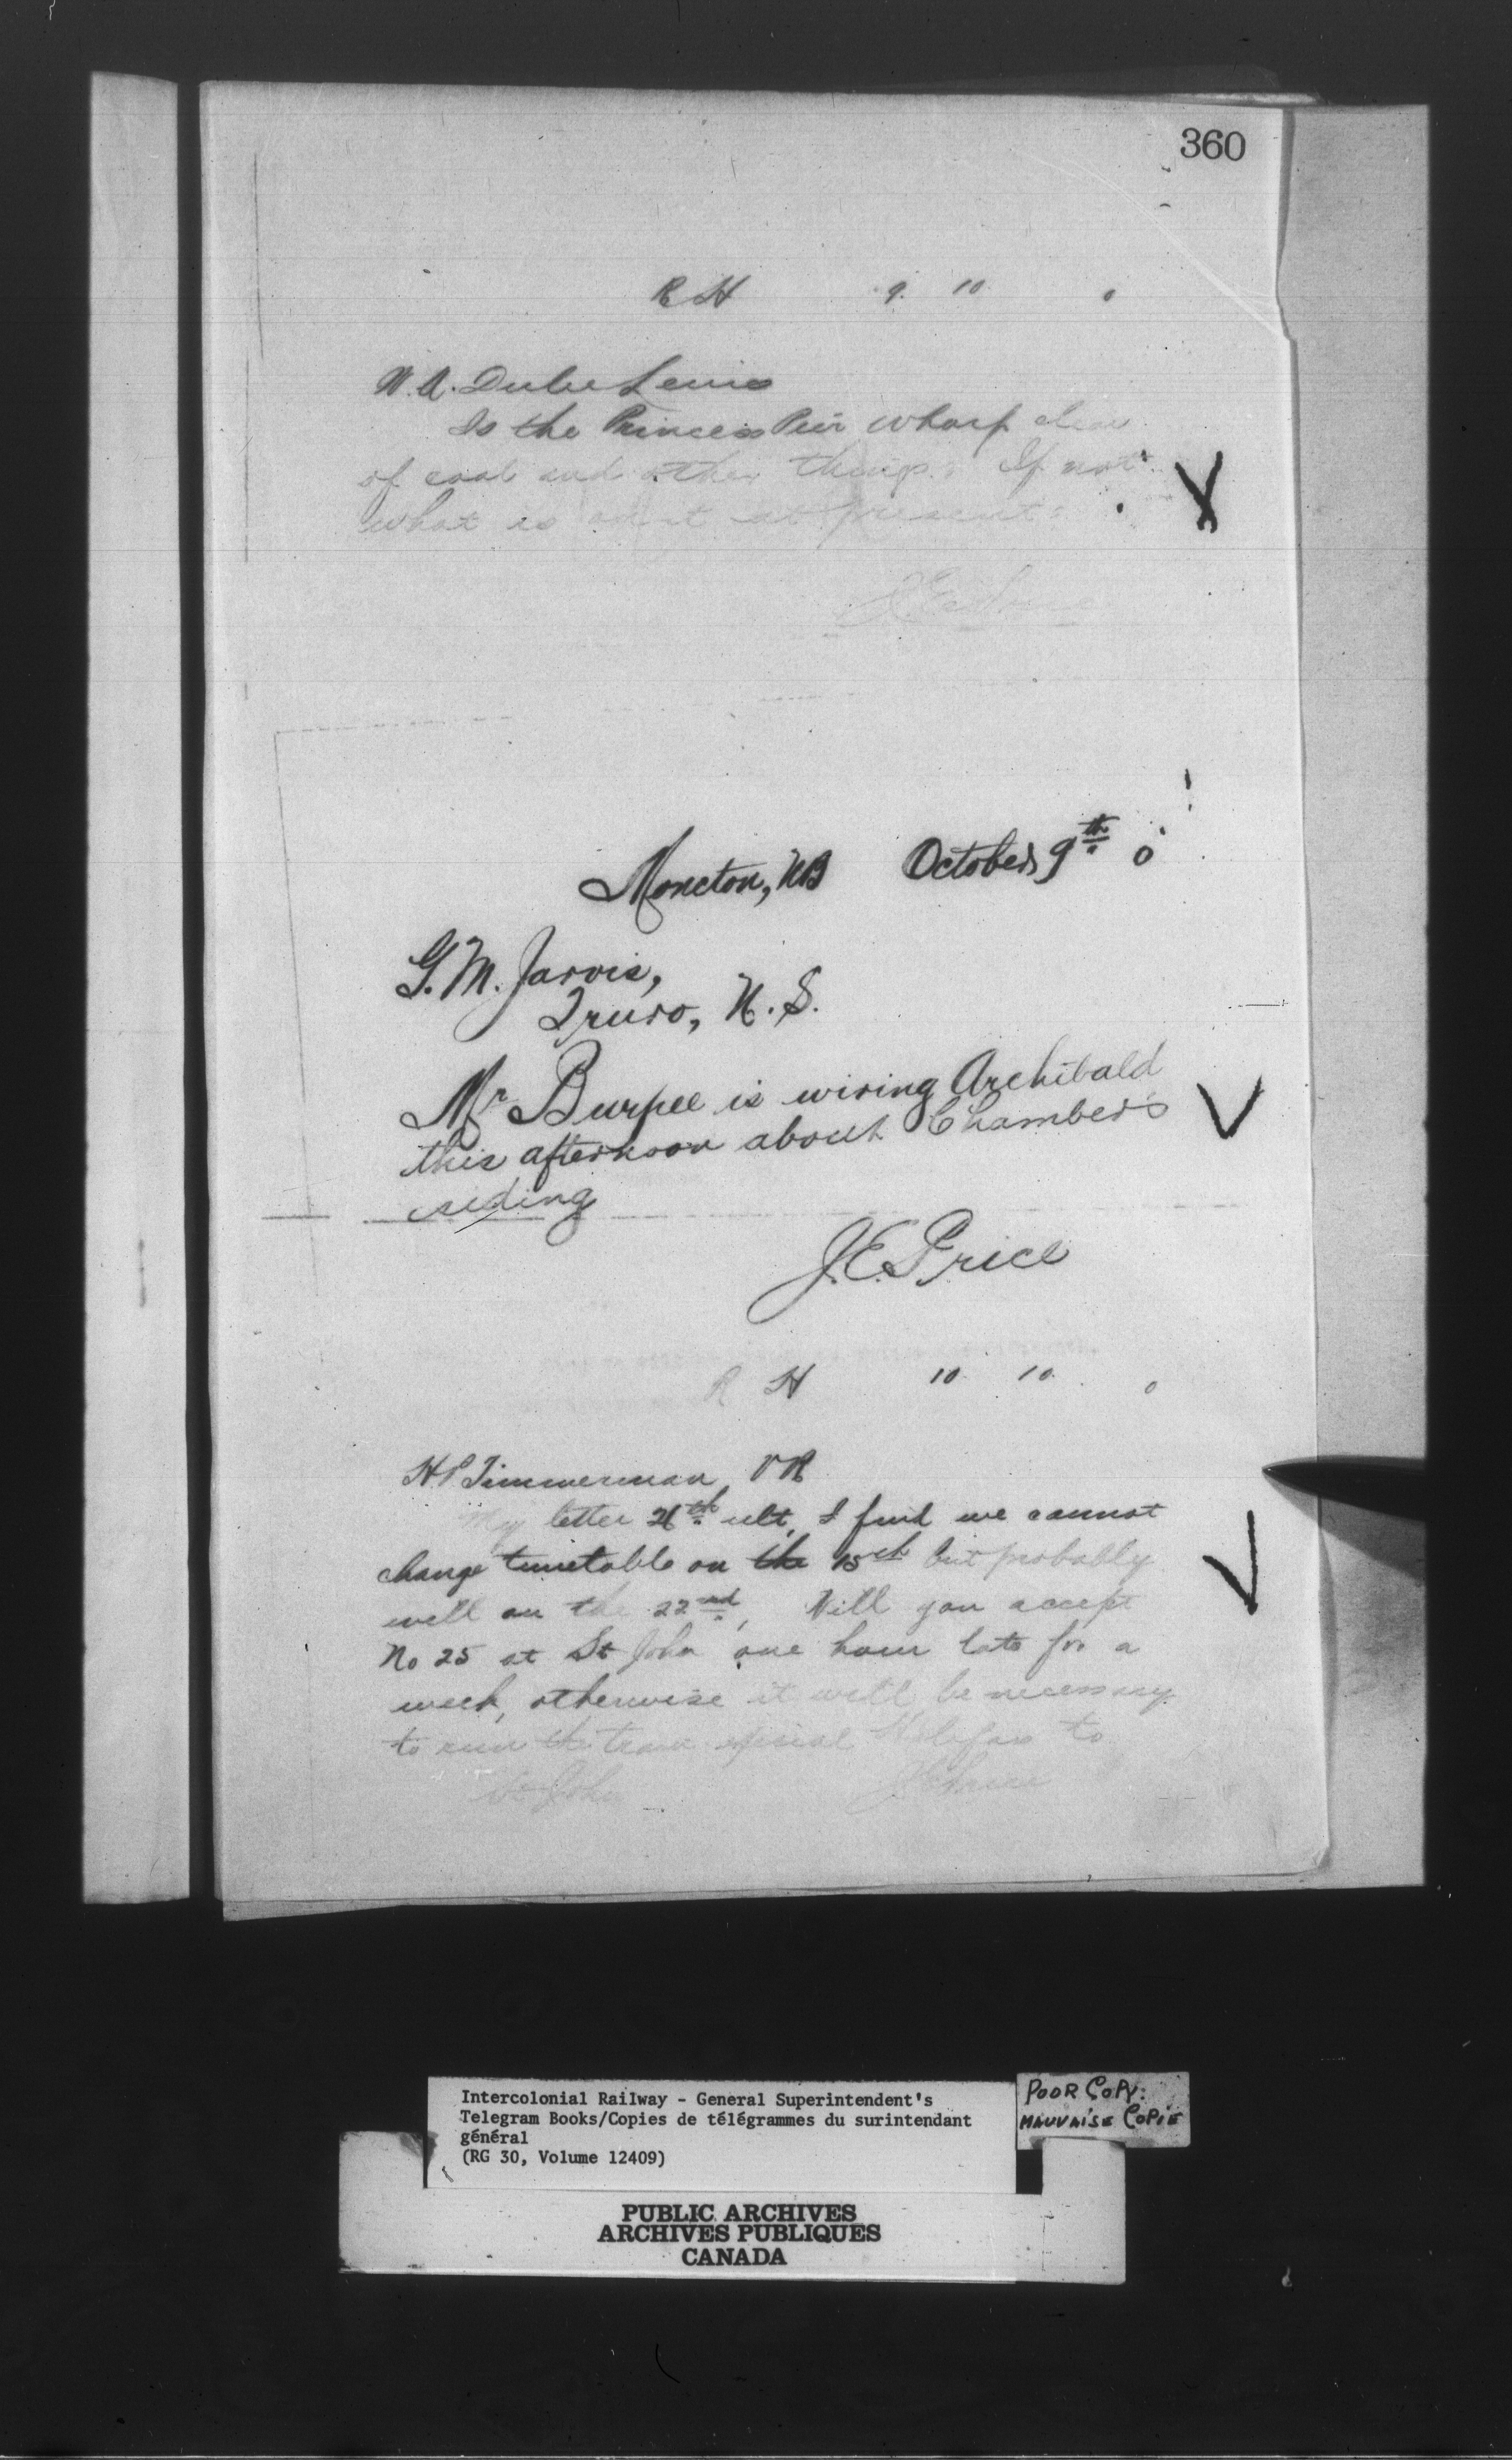 360
R H 9. 10 0
N.A. Dube Levis
Is the Princess Pier wharf clear
of coal and other things. If not
what is on it at present.
J.E. Price
Moncton, NB October 9th 0
G.M. Jarvis,
Truro, N.S.
Mr Burpee is wiring Archibald
this afternoon about Chambers
siding
J.E. Price
R H 10 10. 0
H P Timmerman V R
My letter 26th ult, I find we cannot
change timetable on the 15th but probably
will on the 22nd, Will you accept
No 25 at St John one hour late for a
week, otherwise it will be necessary
to run the train special Halifax to
St John J E Price
Intercolonial Railway - General Superintendent's
Telegram Books/Copies de télégrammes du surintendant
général
(RG 30, Volume 12409)
POOR COPY.
MAUVAISE COPIE
PUBLIC ARCHIVES
ARCHIVES PUBLIQUES
CANADA